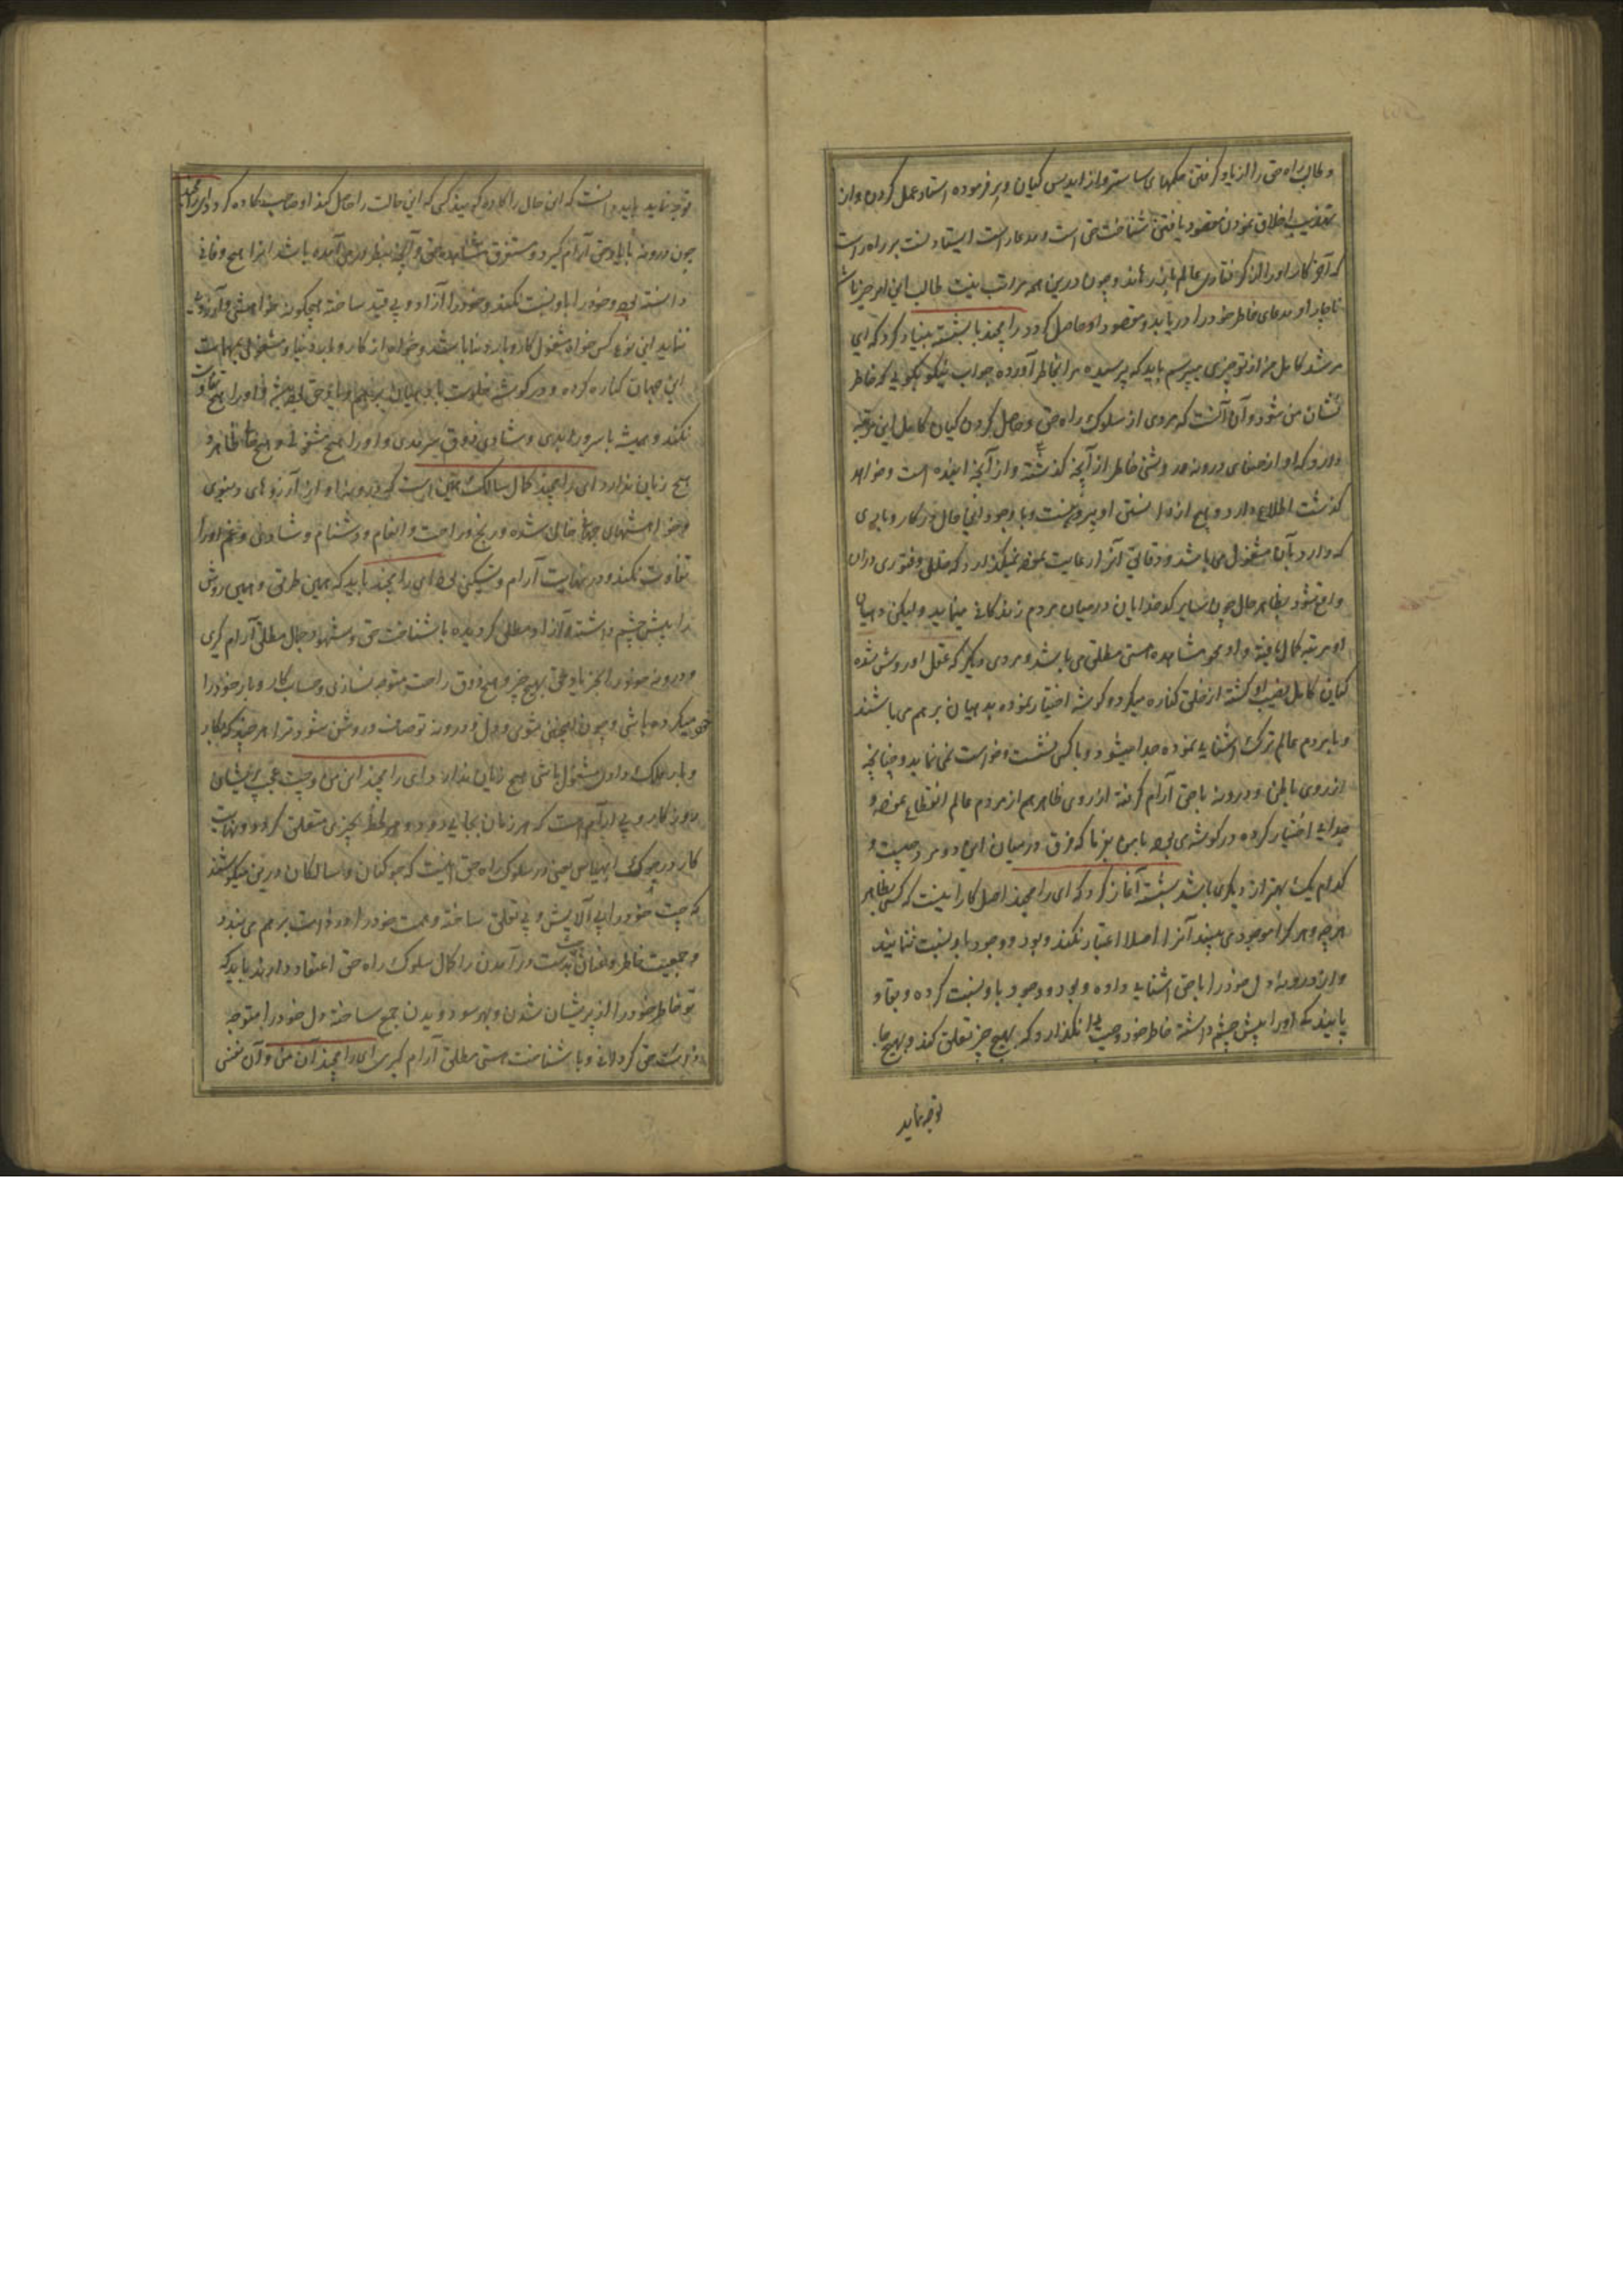 و طالب راه حق را از یاد گرفتن حکمهای ساستر و از اپدیس گیان و بر فرموده استاد عمل کردن و از
تهذیب اخلاق نمودن مقصود یافتن شناخت حق است و مدعا راست ایستادنست بر راه راست
که آخر کار او را از گرفتاری عالم باز رهاند و چون درین همه مراتب نیت طالب این امر جزما باشد
ناچار او مدعای خاطر خود را دریابد و مقصود او حاصل گردد رامچند با بسشته بنیاد کرد که ای
مرشد کامل من از تو چیزی میپرسم باید که پرسیده مرا بخاطر آورده جواب نیکو بگویی که خاطر
نشان من شود و آن آنست که مردی از سلوک راه حق و حاصل کردن گیان کامل این مرتبه
دارد که او از صفای درونه و روشنی خاطر از آنچه گذشته و از آنچه آینده است و خواهد
گذشت اطلاع دارد و هیچ از دانستن او بیرون نیست و با وجود این حال در کار و باری
که دارد بآن مشغول می باشد و دقایق آنرا رعایت نموده نمیگذارد که خللی و فتوری دران
واقع شود بظاهر حال چون سایر کدخدایان درمیان مردم زندگانی مینماید ولیکن دهیان
او مرتبه کمال یافته و او محو مشاهده هستی مطلق می باشد و مردی دیگر که عقل او روشن شده
گیان کامل نصیب او گشته از خلق کناره میگیرد و گوشه اختیار نموده بدهیان برهم می باشند
و با مردم عالم ترک آشنایی نموده جدا میشود و با کس نشست و خواست نمی نماید و چنانچه
از روی باطن و درونه با حق آرام گرفته از روی ظاهر هم از مردم عالم انقطاع نموده و
جدایی اختیار کرده در گوشه می بود با من بفرما که فرق درمیان این دو مرد چیست و
کدام یک بهتر از دیگری باشد بسشته آغاز کرد که ای رامچند اصل کار اینست که کسی بظاهر
هرچه و هر کرا موجود می بیند آنرا اصلا اعتبار نکند و بود و وجود باو نسبت ننماید
و از درونه دل خود را با حق آشنایی داده و بود و وجود باو نسبت کرده و بقا و
پایندگی او را پیش چشم داشته خاطر خود و چیت را نگذارد که بهیچ چیز تعلق کند و بهیچ جا
توجه نماید
توجه نماید باید دانست که این حال را کاوه گویند کسی که این حالت را حاصل کند او صاحب کاوه گردد ای رامچند
چون درونه با یاد حق آرام گیرد و مستغرق مشاهده حق و آنچه بنظر در می آمده باشد آنرا هیچ و فانی
دانسته بود و وجود را باو نسبت نکند و خود را آزاد و بی قید ساخته هیچگونه خواهشی و آرزوی
ننماید این نوع کس خواه مشغول کار و بار دنیا باشد و خواه از کار و بار دنیا و مشغولی مهمات
این جهان کناره کرده و در گوشه خلوت با دهیان برهم و یاد حق بوده باشد او را هیچ تفاوت
نکند و همیشه با سرور ابدی و شادی ذوق سرمدی و او را هیچ مشغولی و هیچ ظاهر و
هیچ زیان ندارد ای رامچند کمال سالک همین است که درونه او از آرزوهای دنیوی
و خواهشهای جهان خالی شده و رنج و راحت و انعام و دشنام و شادی و غم او را
تفاوت نکند و در نهایت آرام و تسکین بود ای رامچند باید که همین طریق و همین روش
را پیش چشم داشته و آزاد مطلق گردیده با شناخت حق و شهود جمال مطلق آرام گیری
و درونه خود را بجز یاد حق بهیچ چیز و هیچ ذوق راحت متوجه نسازی و حساب کار و بار خود را
میکرده باشی و چون اینچنین شوی و دل و درونه تو صاف و روشن شود ترا هر چند که بکار
و بار ملک و دول مشغول باشی هیچ زیان ندارد ای رامچند این من و چیت عجب پریشان
کار و بی آرام است که هر زمان بجایی دود و هر لحظه بچیزی متعلق گردد و نهایت
کار در جوگ ابهیاس یعنی در سلوک راه حق اینست که جوگیان و سالکان درین میکوشند
که چیت خود را بی آلایش و بی تعلق ساخته و همت خود را در ذات برهم می بندد
و جمعیت خاطر و عنان بدست در آمدن را کمال سلوک راه حق اعتقاد دارند باید که
تو خاطر خود را از پریشان شدن و بهر سو دویدن جمع ساخته دل خود را متوجه
حق گردانی و با شناخت هستی مطلق آرام گیری ای رامچند آن من و آن منشی